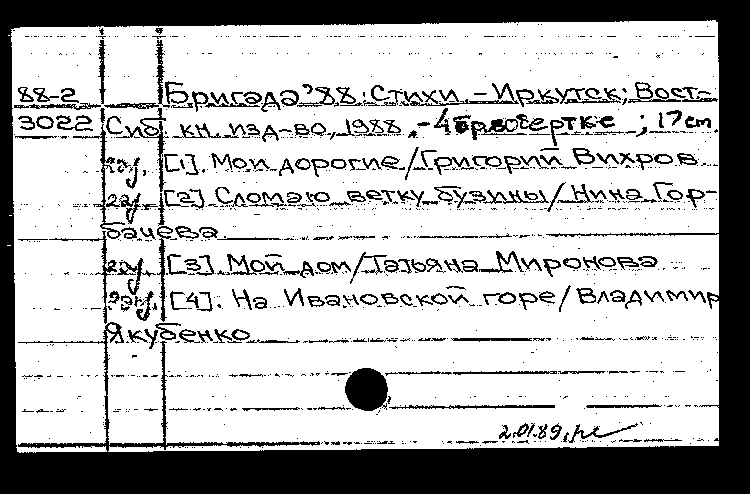 88-2 Бригада'88: Стихи. – Иркутск; Вост.-
3022 Сиб. кн. изд-во, 1988. – 4 бр. в обертке; 17 cm.
[1]. Мои дорогие/Григорий Вихров
[2] Сломаю ветку бузины/Нина Гор-
бачева
[3]. Мой дом/Татьяна Миронова
[4]. На Ивановской горе/Владимир
Якубенко
2.01.89,